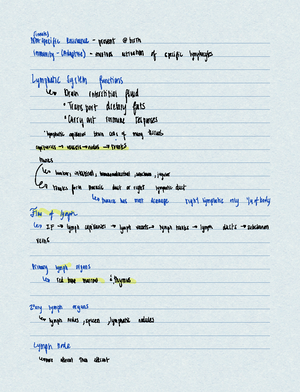 (innate)
Non-specific Resistance - present @ birth
Immunity - (Adaptive) - involves activation of specific lymphocytes
Lymphatic System Functions
↳ Drain interstitial fluid
* Transport dietary fats
* Carry out immune responses
lymphatic capillaries drain cells of many tissues
capillaries → vessels → nodes → trunks
trunks
lumbar, intestinal, bronchomediastinal, subclavian, jugular
↳ trunks form thoracic duct or right lymphatic duct
↳ thoracic has most drainage right lymphatic only 1/4 of body
Flow of lymph
↳ IF → lymph capillaries → lymph vessels → lymph trunks → lymph ducts → subclavian
veins
Primary lymph organs
↳ red bone marrow & thymus
2ndary lymph organs
↳ lymph nodes, spleen, lymphatic nodules
Lymph Node
↳ more afferent than efferent